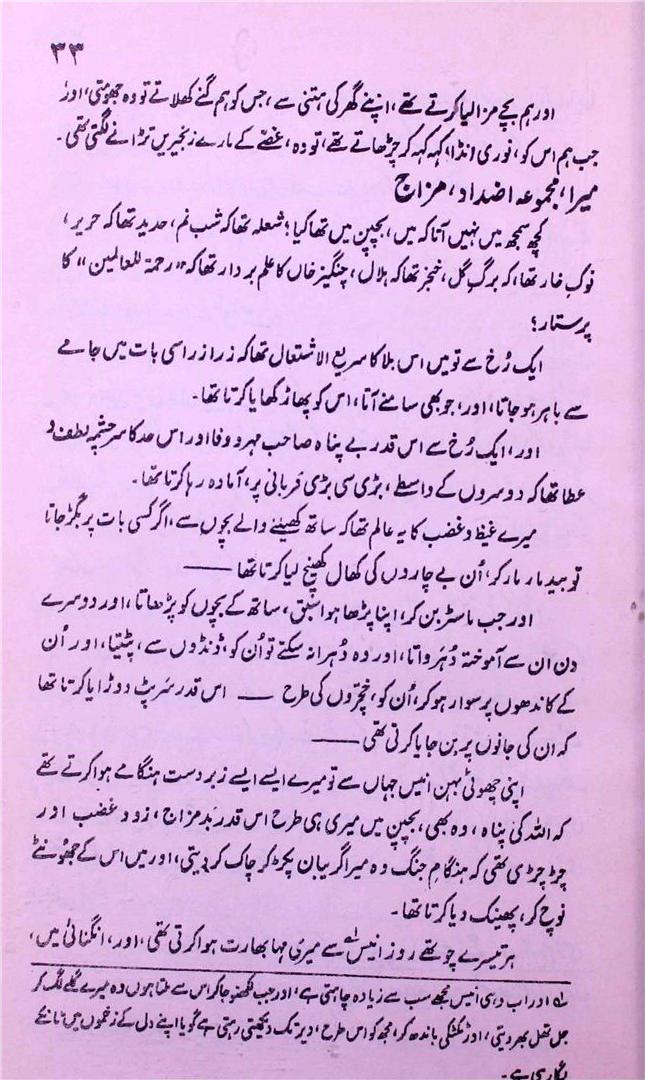 ۳۳
اور ہم بچے مزا لیا کرتے تھے، اپنے گھر کی ہتنی سے، جس کو ہم گنے کھلاتے تو وہ جھومتی، اور
جب ہم اس کو، نوری انڈا، کہہ کہہ کر چڑھاتے تھے، تو وہ، غصّے کے مارے زنجیریں تڑانے لگتی تھی۔
میرا، مجموعہ اضداد، مزاج
کچھ سمجھ میں نہیں آتا کہ میں، بچپن میں تھا کیا؟ شعلہ تھا کہ شبنم، حدید تھا کہ حریر،
نوکِ خار تھا، کہ برگِ گل، خنجر تھا کہ ہلال، چنگیز خاں کا علم بردار تھا کہ "رحمۃ للعالمین" کا
پرستار؟
ایک رُخ سے تو میں اس بلا کا سریع الاشتعال تھا کہ ذرا ذرا سی بات میں جامے
سے باہر ہو جاتا، اور، جو بھی سامنے آتا، اس کو پھاڑ کھایا کرتا تھا۔
اور، ایک رُخ سے اس قدر بے پناہ صاحب مہر و وفا اور اس حد کا سرچشمۂ لطف و
عطا تھا کہ دوسروں کے واسطے، بڑی سی بڑی قربانی پر، آمادہ رہا کرتا تھا۔
میرے غیظ و غضب کا یہ عالم تھا کہ ساتھ کھیلنے والے بچوں سے، اگر کسی بات پر بگڑ جاتا
تو بید مار مار کر، اُن بے چاروں کی کھال کھینچ لیا کرتا تھا ——
اور جب ماسٹر بن کر، اپنا پڑھا ہوا سبق، ساتھ کے بچوں کو پڑھاتا، اور دوسرے
دن ان سے آموختہ دُہرواتا، اور وہ دُہرا نہ سکتے تو اُن کو، ڈنڈوں سے، پٹیتا، اور اُن
کے کاندھوں پر سوار ہو کر، اُن کو، خچّروں کی طرح —— اس قدر سرپٹ دوڑایا کرتا تھا
کہ ان کی جانوں پر بن جایا کرتی تھی ——
اپنی چھوٹی بہن انیس جہاں سے تو میرے ایسے ایسے زبردست ہنگامے ہوا کرتے تھے
کہ اللہ کی پناہ، وہ بھی، بچپن میں میری ہی طرح اس قدر بدمزاج، زود غضب اور
چڑچڑی تھی کہ ہنگامِ جنگ وہ میرا گریبان پکڑ کر چاک کر دیتی، اور میں اس کے جھونٹے
نوچ کر، پھینک دیا کرتا تھا۔
ہر تیسرے چوتھے روز انیس لہ سے میری مہا بھارت ہوا کرتی تھی، اور، انگنائی میں،
لہ اور اب وہی انیس مجھے سب سے زیادہ چاہتی ہے، اور جب لکھنؤ جا کر اس سے ملتا ہوں وہ میرے گلے لگ کر
جل تھل بھر دیتی، اور ٹکٹکی باندھ کر، مجھ کو اس طرح، دیر تک دیکھتی رہتی ہے گویا اپنے دل کے زخموں میں ٹانکے
لگا رہی ہے۔